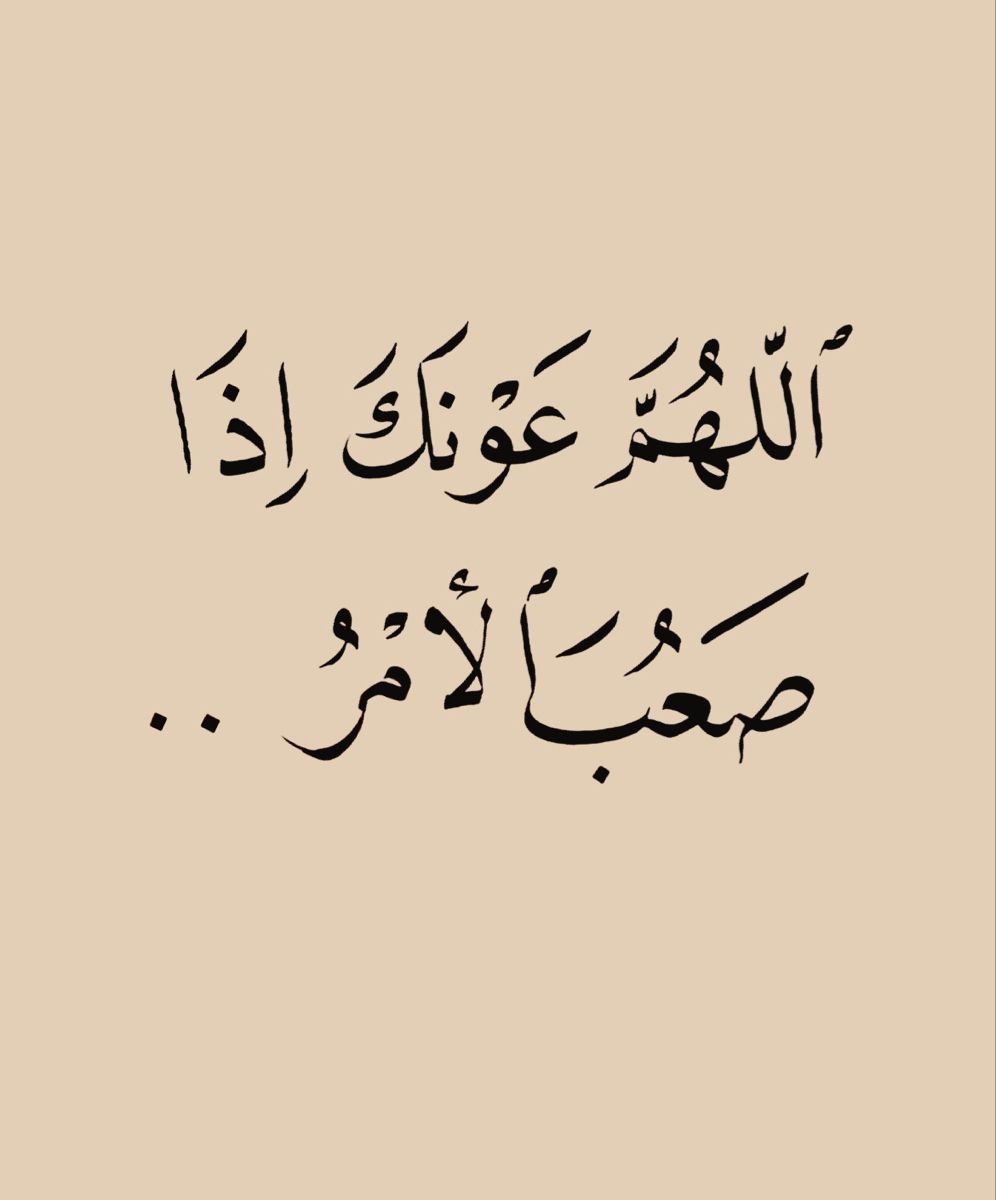 ٱللّٰهُمَّ عَوْنَكَ إِذَا
صَعُبَ ٱلأَمْرُ ..